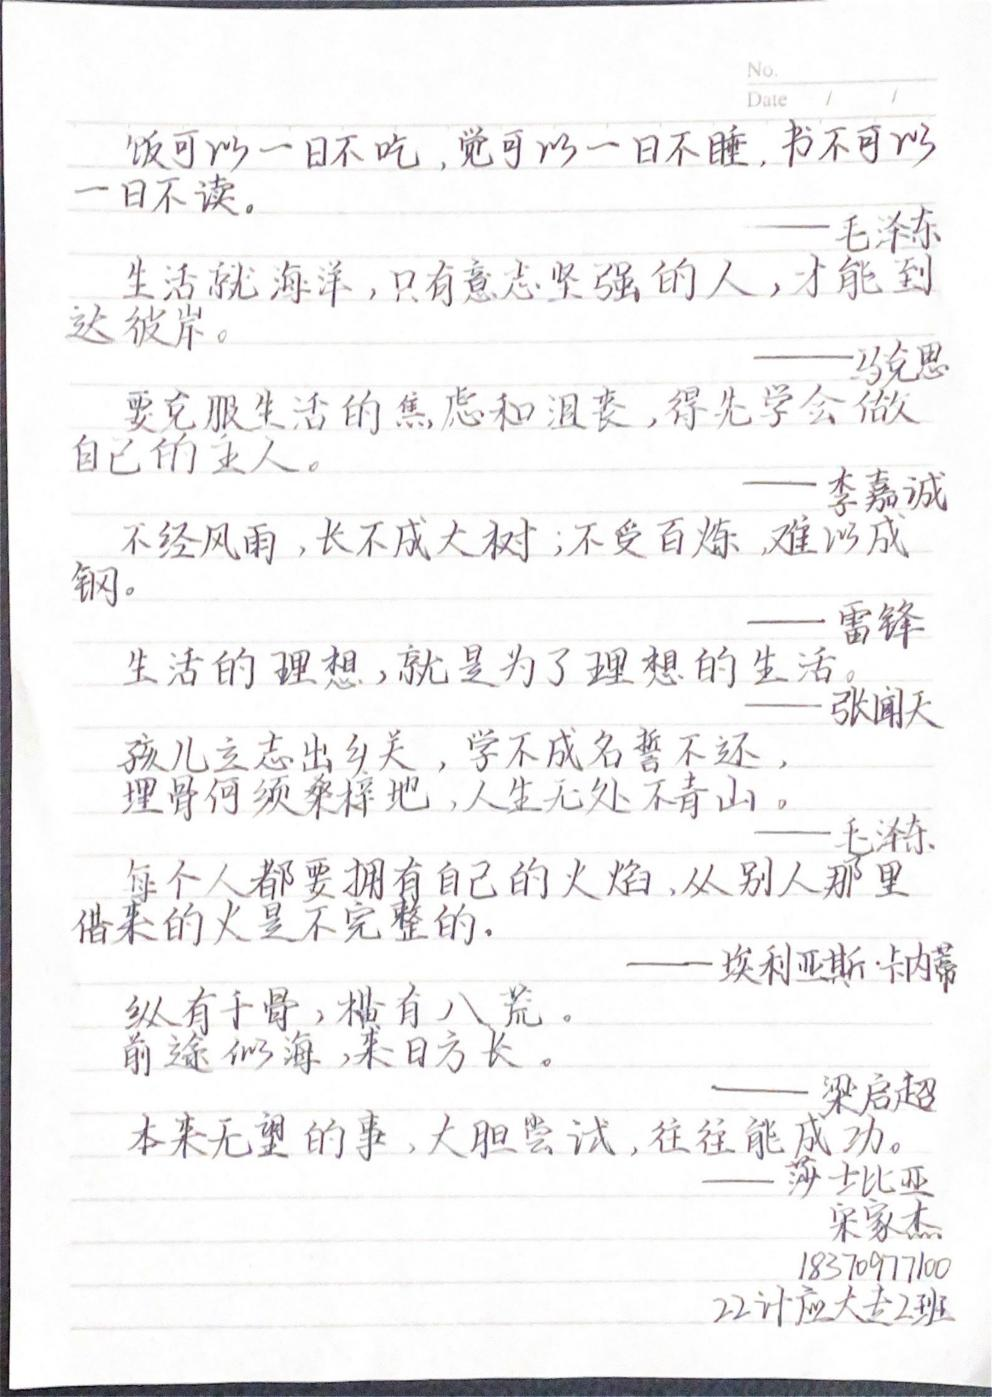 No.
Date / /
饭可以一日不吃,觉可以一日不睡,书不可以
一日不读。
——毛泽东
生活就海洋,只有意志坚强的人,才能到
达彼岸。
——马克思
要克服生活的焦虑和沮丧,得先学会做
自己的主人。
——李嘉诚
不经风雨,长不成大树;不受百炼,难以成
钢。
——雷锋
生活的理想,就是为了理想的生活。
——张闻天
孩儿立志出乡关,学不成名誓不还,
埋骨何须桑梓地,人生无处不青山。
——毛泽东
每个人都要拥有自己的火焰,从别人那里
借来的火是不完整的.
——埃利亚斯·卡内蒂
纵有千骨,横有八荒。
前途似海,来日方长。
——梁启超
本来无望的事,大胆尝试,往往能成功。
——莎士比亚
宋家杰
18370977100
22计应大专2班